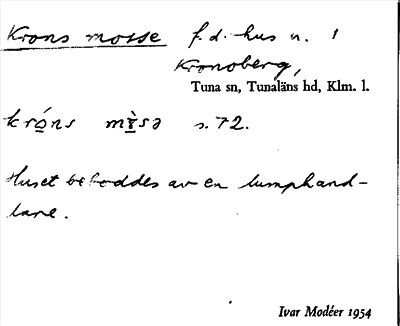 Krons mosse f.d. hus n. 1
Kronoberg,
Tuna sn, Tunaläns hd, Klm. l.
króns mɤ̀sə s. 72.
Huset beboddes av en lumphand-
lare.
Ivar Modéer 1954